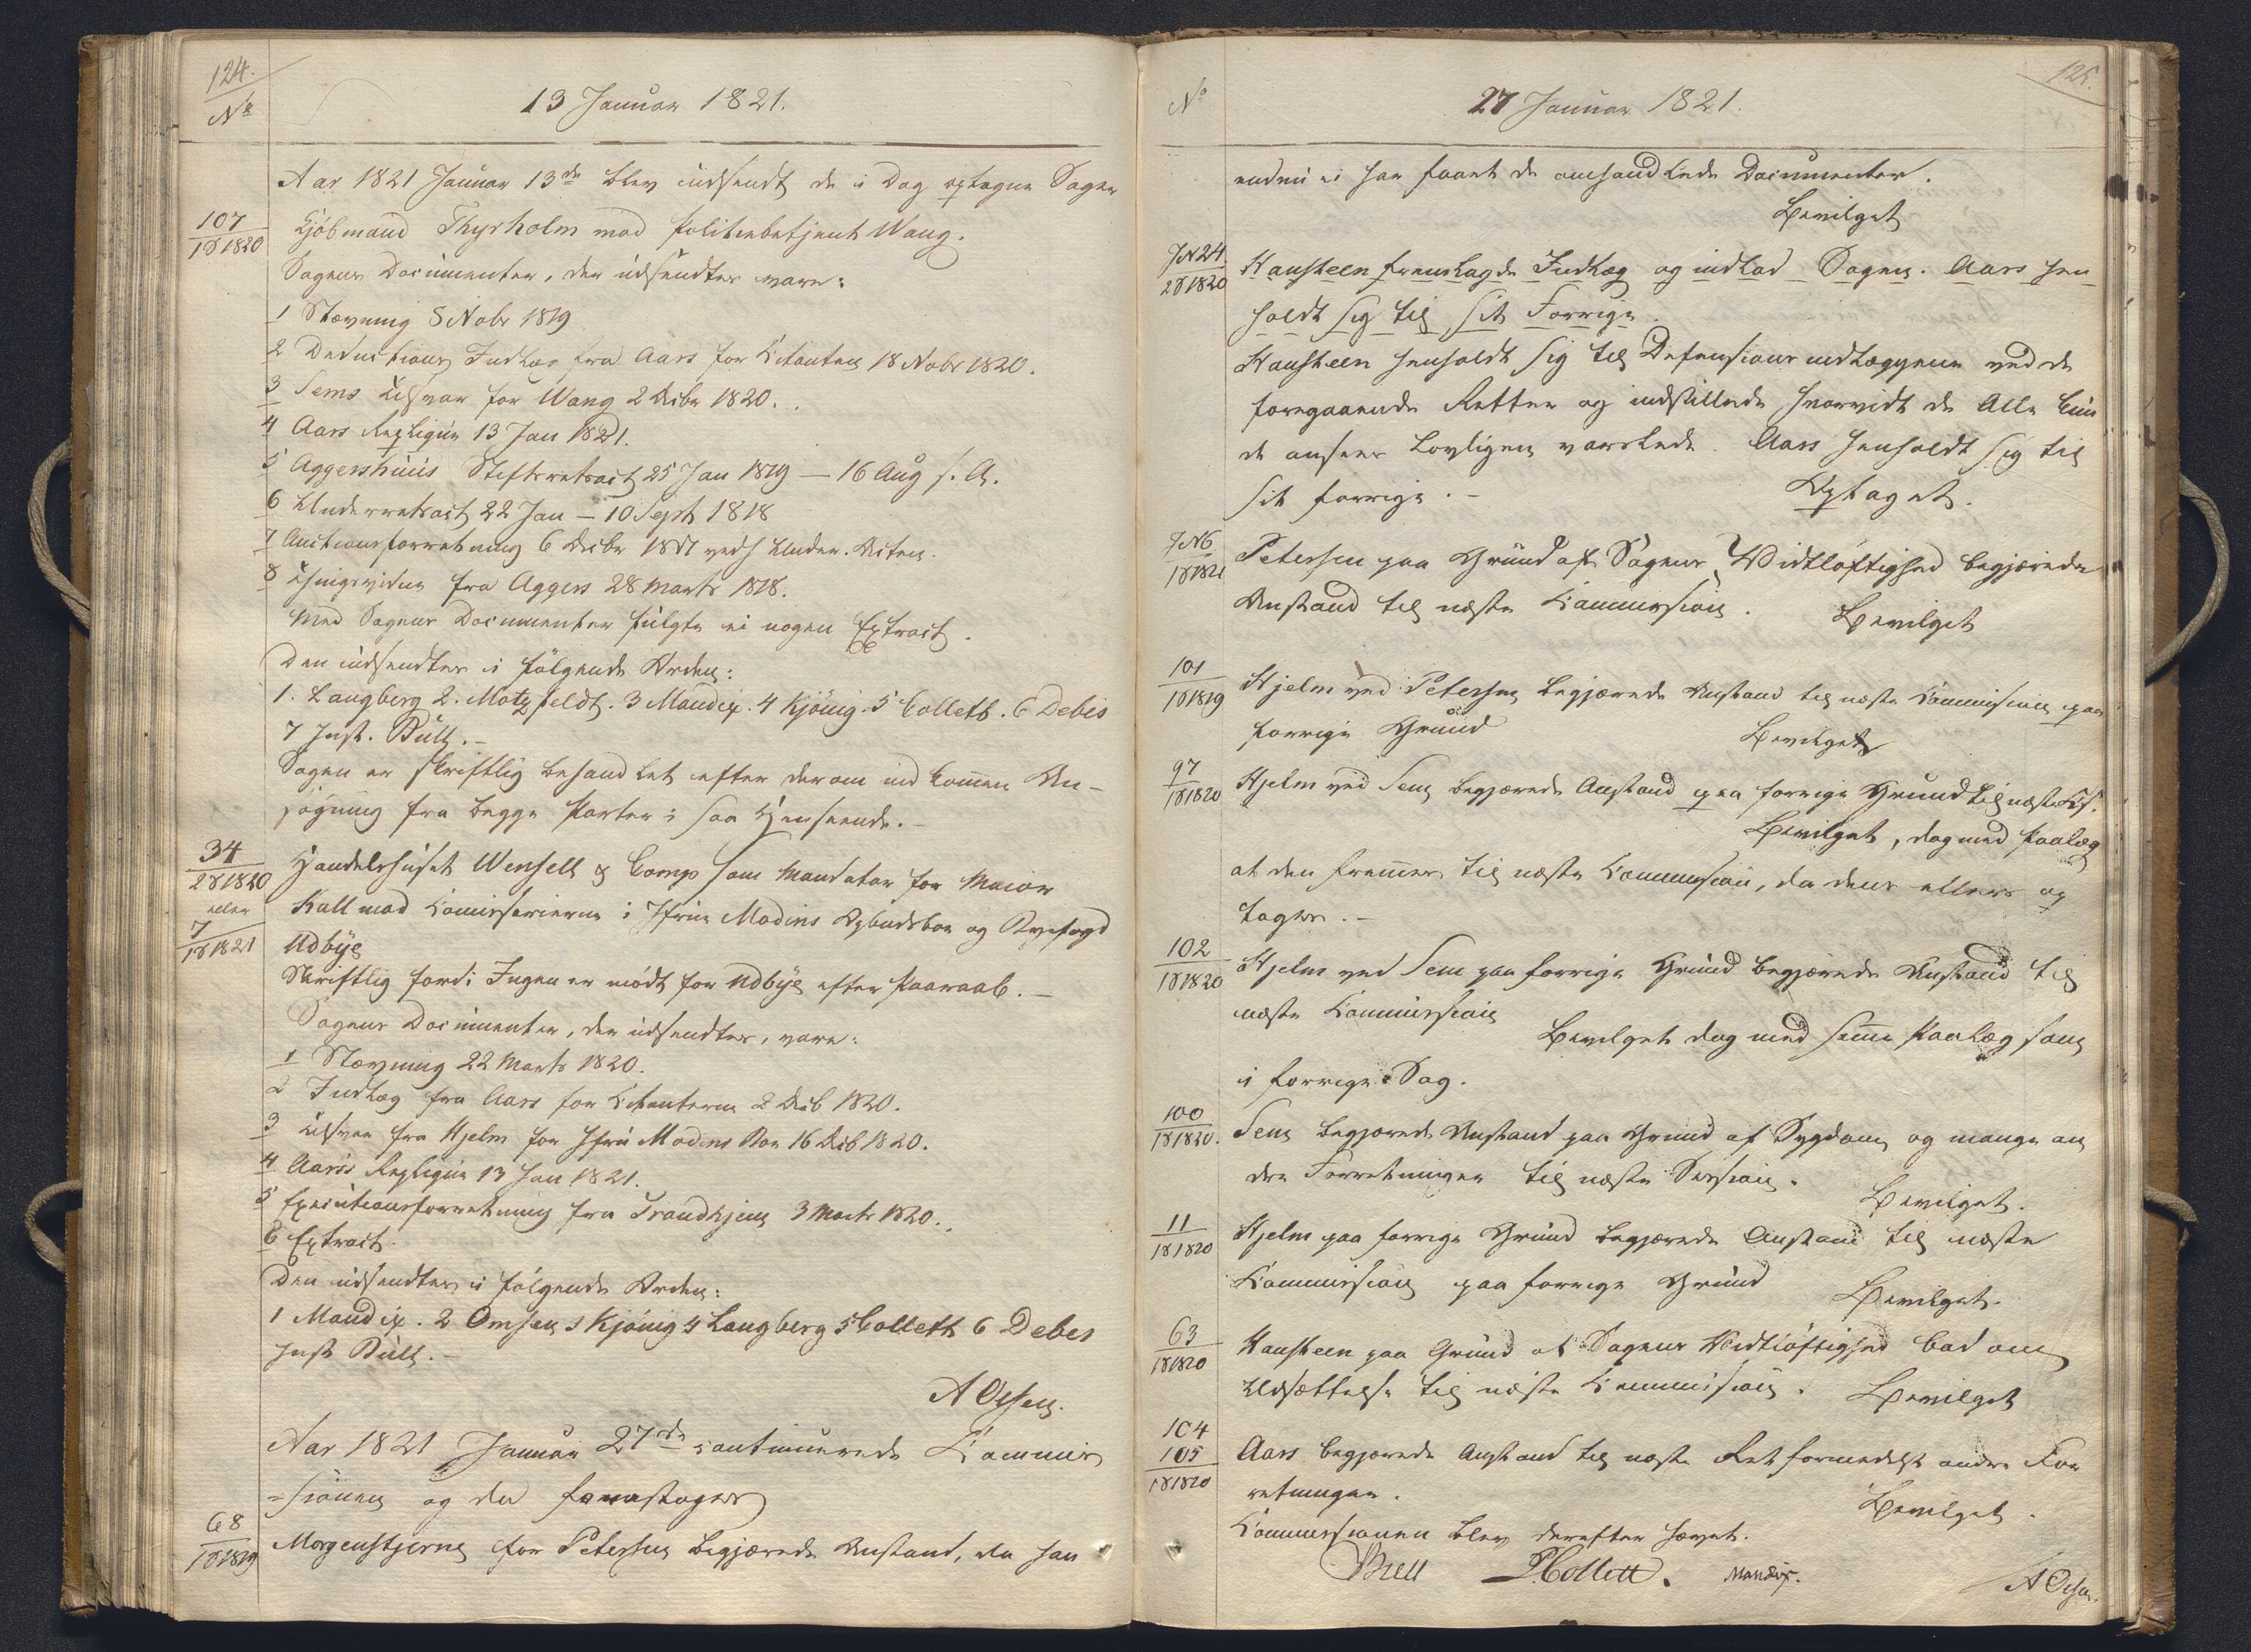 124.
No
13 Januar 1821.
Aar 1821 Januar 13de blev udsendt de i Dag optagne Sager
107
1S1820
Kjöbmand Thyrholm mod Politiebetjent Wang.
Sagens Documenter, der udsendtes vare:
1 Stævning 8 Nobr 1819
2 Deductions Indlæg fra Aars for Citanten 18 Nobr 1820.
3 Sems Tilsvar for Wang 2 Decbr 1820.
4 Aars Repliqve 13 Jan 1821.
5 Aggershuus Stiftsretsact 25 Jan 1819 — 16 Aug s. A.
6 Underretsact 22 Jan – 10 Sept 1818
7 Auctionsforretning 6 Decbr 18 ved Under. Acten.
8 Thingsvidne fra Aggers 28 Marts 1818.
Med Sagens Documenter fulgte ei nogen Extract.
Den udsendtes i følgende Orden:
1. Langberg 2. Motzfeldt. 3 Mandix. 4 Kjönig. 5 Collett. 6 Debes
7 Just. Bull.–
Sagen er skriftlig behandlet efter derom indkommen An-
søgning fra begge Parter i saa Henseende.–
34
2S1820
eller
7
1S1821
Handelshuset Wensell & Comp som Mandatar for Maior
Kall mod Commissarierne i Jfrue Modins Opbudsboe og Byefogd
Udbye
Skriftlig fordi Ingen er mødt for Udbye efter Paaraab.–
Sagens Documenter, der udsendtes, vare:
1 Stævning 22 Marts 1820.
2 Indlæg fra Aars for Citanterne 2 Decb 1820.
3 Tilsvar fra Hjelm for Jfru Modins Boe 16 Decb 1820.
4 Aars's Repliqve 13 Jan 1821.
5 Executionsforretning fra Trondhjem 3 Marts 1820.
6 Extract.
Den udsendtes i følgende Orden:
1 Mandix. 2 Omsen 3 Kjönig 4 Langberg 5 Collett 6 Debes
Just Bull.–
A Olsen.
Aar 1821 Januar 27de continuerede Commis
=sionen og da foretages
68
1S1819
Morgenstjerne for Petersen begjærede Anstand, da han
No
27 Januar 1821.
125.
endnu ei har faaet de omhandlede Documenter.
Bevilget
J No 24
2S1820
Hansteen fremlagde Indlæg og indlod Sagen. Aars hen
holdt sig til sit Forrige.
Hansteen henholdt sig til Defensionsindlæggene ved de
foregaaende Retter og indstillede hvorvidt de Alle kun
de ansees lovligen varslede. Aars henholdt sig til
sit forrige.–
Optaget.
J No 6
1S1821
Petersen paa Grund af Sagens Vidtløftighed begjærede
Anstand til næste Commission.
Bevilget
101
1S1819
Hjelm ved Petersen begjærede Anstand til næste Commission paa
forrige Grund
Bevilget
97
1S1820
Hjelm ved Sem begjærede Anstand paa forrige Grund til næste
Bevilget, dog med Paalæg
at den fremmes til næste Commission, da den ellers op
tages.–
102
1S1820
Hjelm ved Sem paa forrige Grund begjærede Anstand til
næste Commission
Bevilget dog med samme Paalæg som
i forrige Sag.
100
1S1820.
Sem begjærede Anstand paa Grund af Sygdom og mange an
dre Forretninger til næste Session.
Bevilget.
11
1S1820
Hjelm paa forrige Grund begjærede Anstand til næste
Commission paa forrige Grund
Bevilget.
63
1S1820
Hansteen paa Grund af Sagens Vidtløftighed bad om
Udsættelse til næste Commission.
Bevilget
104
105
1S1820
Aars begjærede Anstand til næste Ret formedelst andre For
retninger.
Bevilget.
Commissionen blev derefter hævet.
Bull P. Collett. Mandix.
A Olsen.